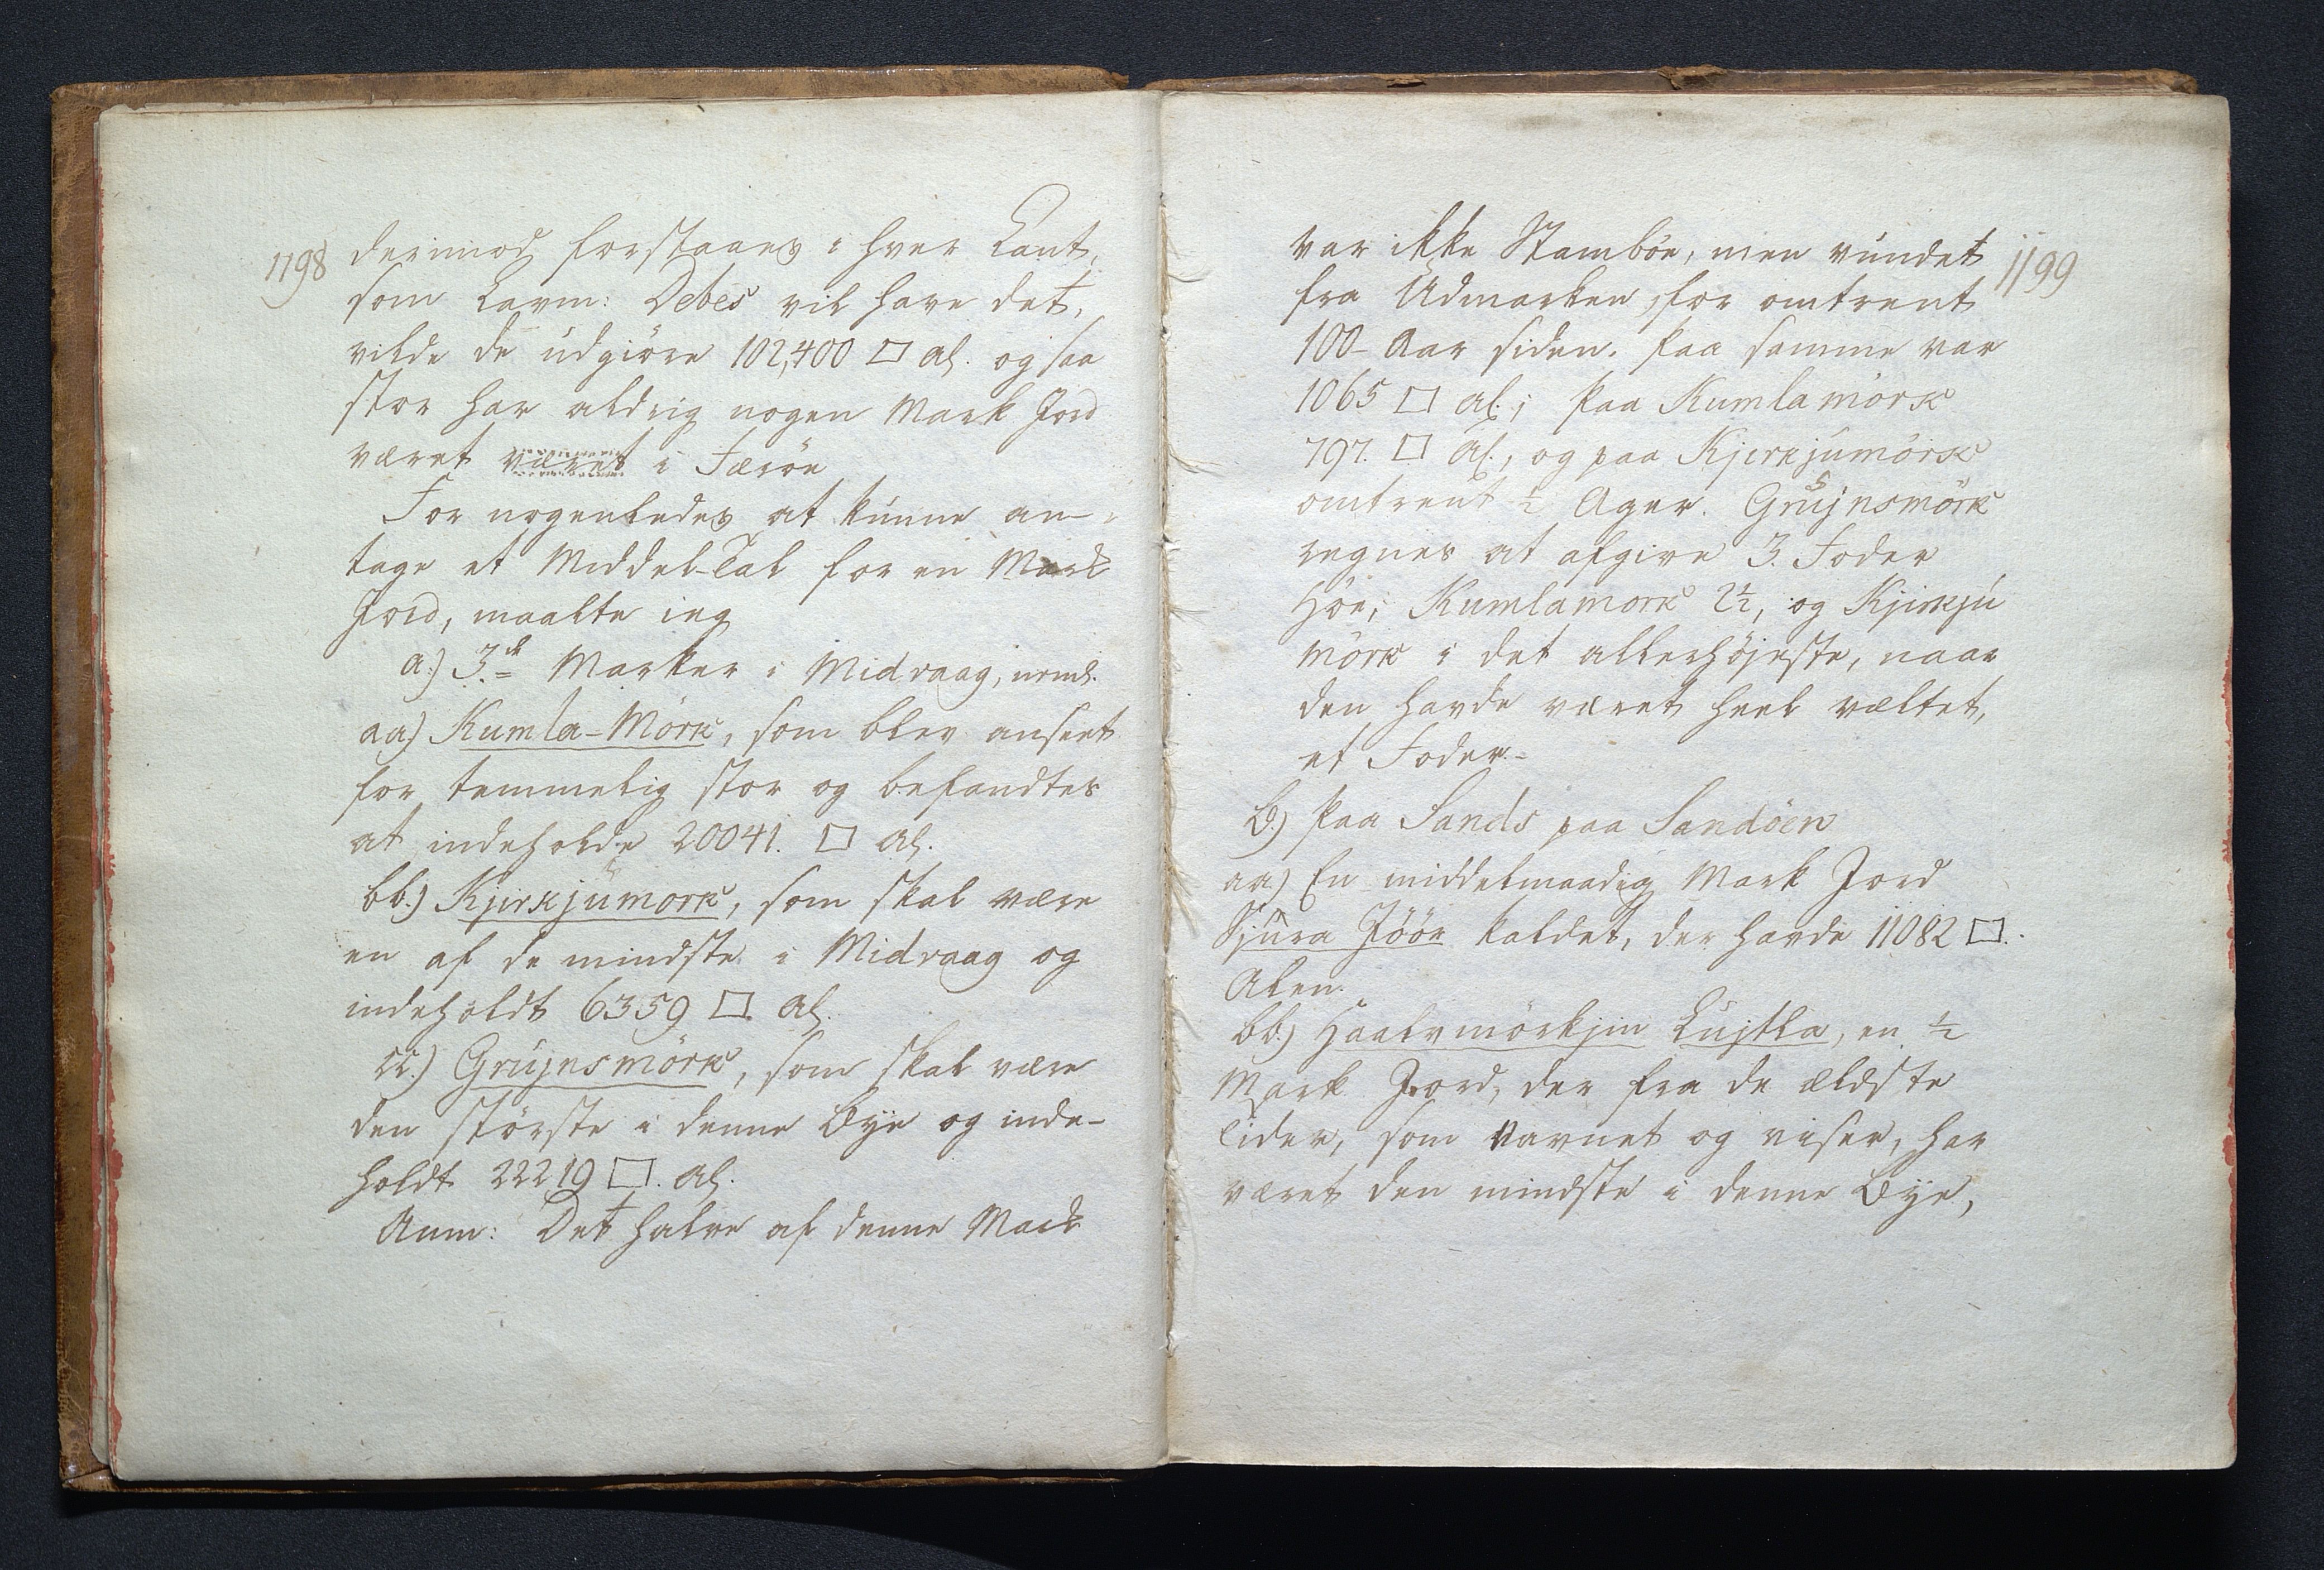 1198
derimod forstaaes i hver Kant,
som Lavm: Debes vil have det,
vilde de udgiöre 102,400 □ Al. og saa
stor har aldrig nogen Mark Jord
været været i Færöe
For nogenledes at kunne an-
tage et Middel-Tal for en Mark
Jord, maalte ieg
a.) 3de Marker i Midvaag, neml.
aa) Kumla-Mörk, som blev anseet
for temmelig stor og befandtes
at indeholde 20041. □ Al.
bb.) Kjirkjumörk, som skal være
en af de mindste i Midvaag og
indeholdt 6359 □ Al.
cc.) Grujnsmörk, som skal være
den störste i denne Bÿe og inde-
holdt 22219 □. Al.
Anm: Det halve af denne Mark
1199
var ikke Stamböe, men vundet
fra Udmarken for omtrent
100 Aar siden. Paa samme var
1065 □ Al.; paa Kumlamörk
797. □ Al., og paa Kjirkjumörk
omtrent ½ Ager. Grujnsmörk
regnes at afgive 3. Foder
Höe; Kumlamörk 2½, og Kjirkju
mörk i det allerhöjeste, naar
den havde været heel væltet,
et Foder.-
b.) Paa Sands paa Sandöen
aa.) En middelmaadig Mark Jord
Sjura Jöör kaldet, der havde 11082 □.
Alen.
bb.) Haalvmörkjin Lujtla, en ½
Mark Jord, der fra de ældste
Tider, som Navnet og viser, har
været den mindste i denne Bÿe,